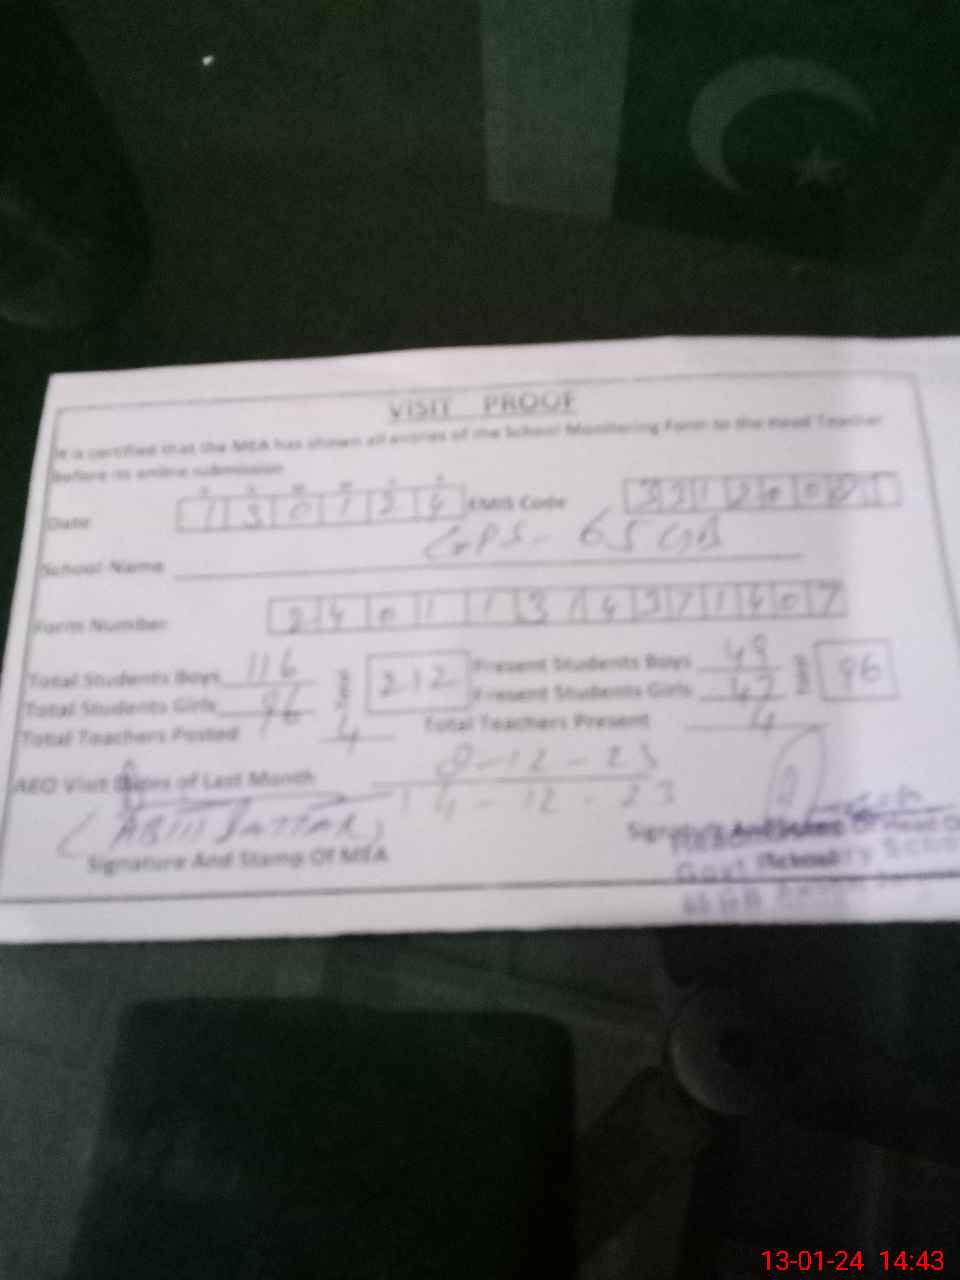 VISIT PROOF
It is certified that the MEA has shown all entries of the School Monitoring Form to the Head Teacher
before its online submission
Date 1 3 0 1 2 4 EMIS Code
School Name GPS - 65 GB
Form Number 2 4 0 1 1 3 1 4 3 7 1 4 0 7
Total Students Boys 116 212 Present Students Boys 49 96
Total Students Girls 96 Present Students Girls 47
Total Teachers Posted 4 Total Teachers Present 4
AEO Visit Dates of Last Month 9-12-23
14-12-23
Signature And Stamp Of MEA
13-01-24 14:43